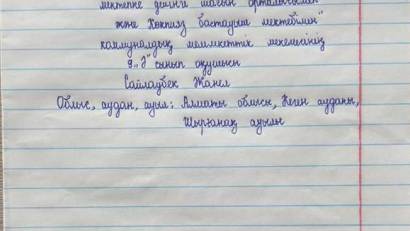 мектепке дейінгі шағын орталығымен
және Көкпияз бастауыш мектебімен"
коммуналдық мемлекеттік мекемесінің
9 „Ә" сынып оқушысы
Сайлаубек Жанел
Облыс, аудан, ауыл: Алматы облысы, Кеген ауданы,
Шырғанақ ауылы